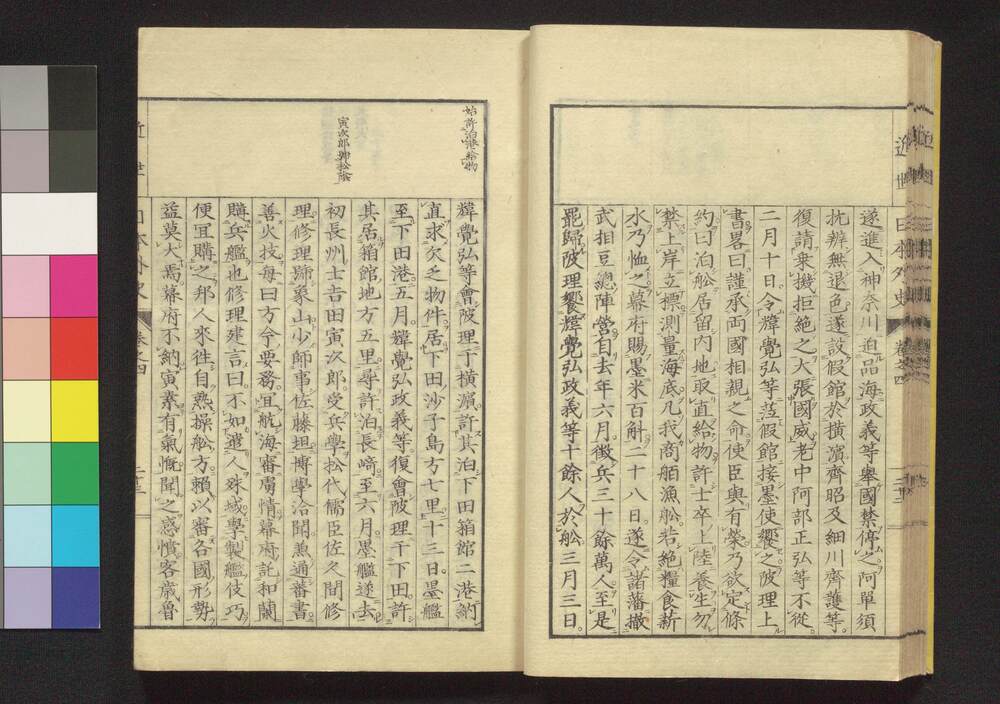 近世日本外史 卷之四
遂進入神奈川迫品海政義等擧國禁停之阿單須
抗辨無退色遂設假館於横濱齊昭及細川齊護等
復請乗機拒絶之大張國威老中阿部正弘等不從
二月十日令韑覺弘等莅假館接墨使饗之陂理上
書畧曰謹承両國相親之命使臣與有榮乃欲定條
約曰泊舩居留内地取直給物許士卒上陸養生勿
禁上岸立標測量海底凡我商舶漁舩若絶糧食薪
水乃恤之幕府賜墨米百斛二十八日遂令諸藩撤
武相豆總陣營自去年六月徴兵三十餘萬人至是
罷歸陂理饗韑覺弘政義等十餘人於舩三月三日
始許泊港給物
寅次郎號松陰
韑覺弘等會陂理于横濱許其泊下田箱館二港納
直求欠乏物件居下田沙子島方七里十三日墨艦
至下田港五月韑覺弘政義等復會陂理于下田許
其居箱館地方五里尋許泊長﨑至六月墨艦遂去
初長州士吉田寅次郎受兵學松代儒臣佐久間修
理修理號象山少師事佐藤坦博學洽聞兼通蕃書
善火技毎曰方今要務宜航海審虜情幕府託和蘭
購兵艦也修理建言曰不如遣人殊域學製艦伎巧
便宜購之邦人來徃自熟操舩方賴以審各國形勢
益莫大焉幕府不納寅素有氣慨聞之感憤客歳魯
近世日本外史 卷之四